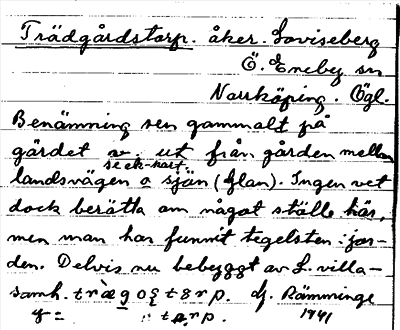 Trädgårdstorp. åker. Loviseberg
Ö. Eneby sn
Norrköping. Ögl.
Benämning sen gammalt på
gärdet n. ut från gården mellan
se ek. kart.
landsvägen o sjön (Glan). Ingen vet
dock berätta om något ställe här,
men man har funnit tegelsten i jor-
den. Delvis nu bebyggt av L. villa-
samh. Rämninge
1941